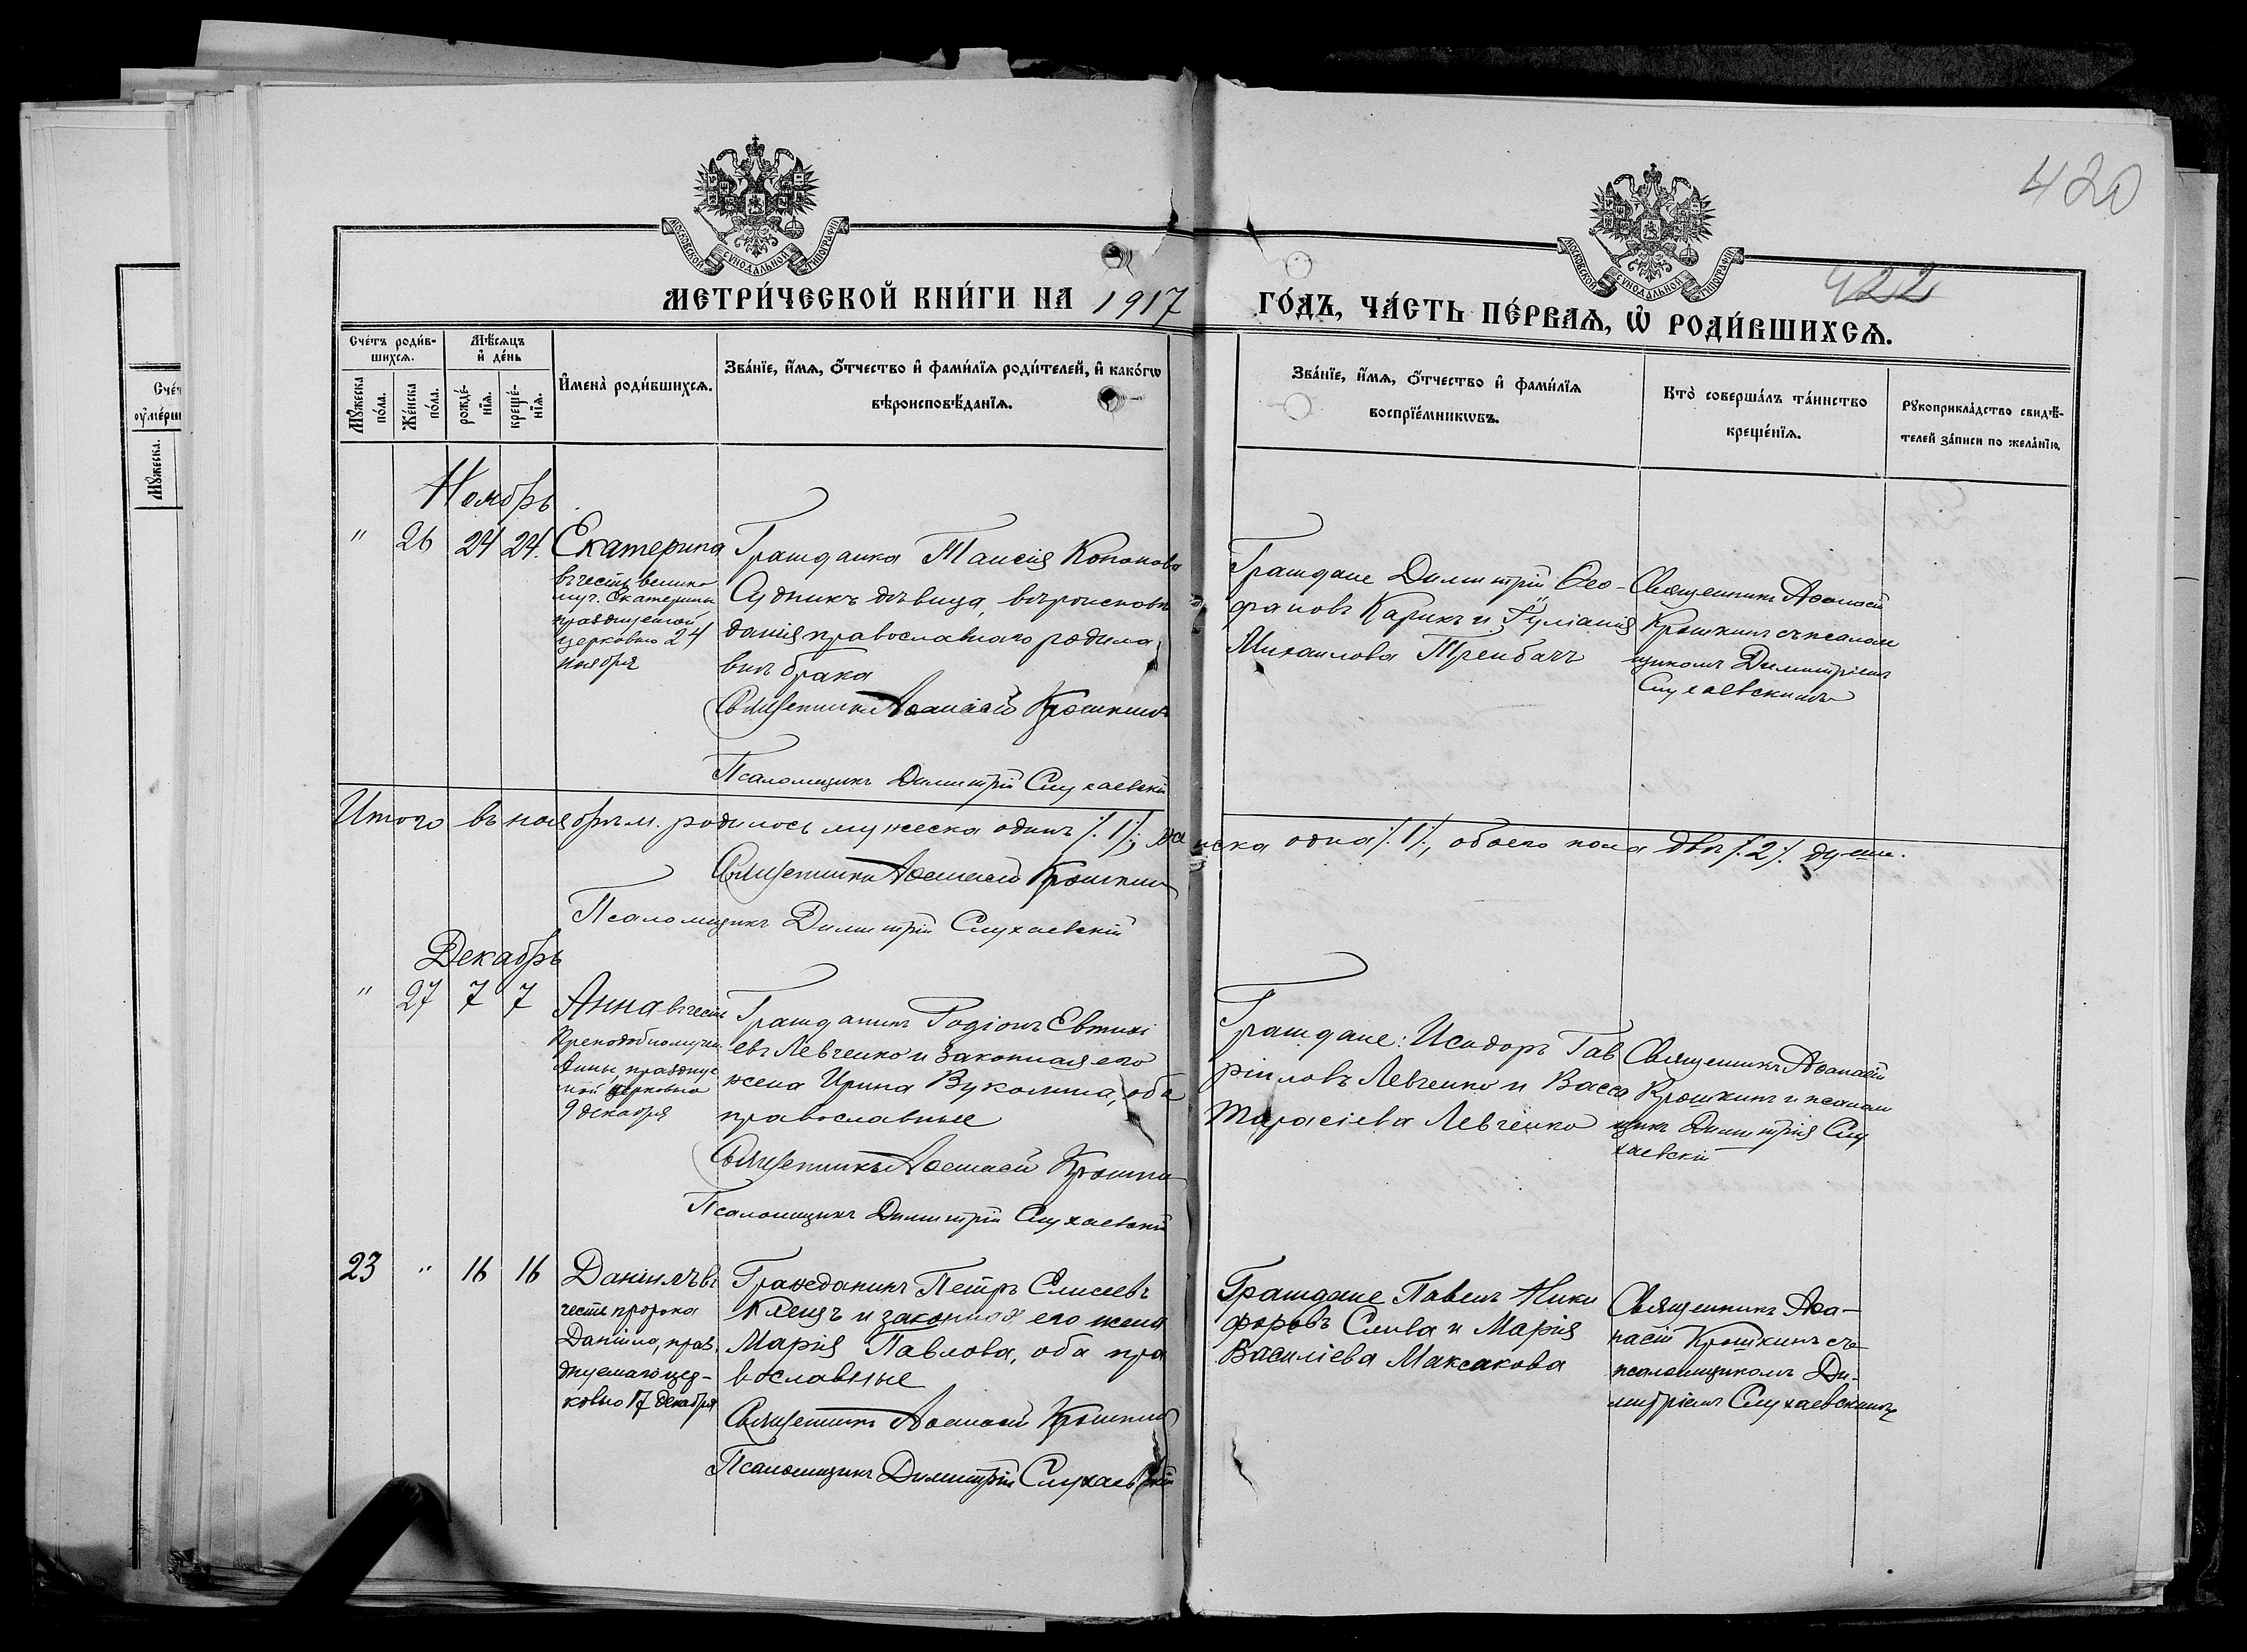 420
422
МОСКОВСКОЙ СУНОДАЛЬНОЙ ТИПОГРАФІИ
МОСКОВСКОЙ СУНОДАЛЬНОЙ ТИПОГРАФІИ
МЕТРИ́ЧЕСКОЙ КНИ́ГИ НА 1917 ГО́ДЪ, ЧА́СТЬ ПЕ́РВАѦ, Ѡ҆ РОДИ́ВШИХСѦ.
Сче́тъ роди́в-
шихсѧ.
Мѣ́сяцъ
и҆ де́нь
Мꙋ́жеска
по́ла.
Же́нска
по́ла.
рожде́-
нїѧ.
креще́-
нїѧ.
И҆мена̀ роди́вшихсѧ.
Зва́нїе, и҆́мѧ, ѻ҆́тчество и҆ фами́лїѧ роди́телей, и҆ како́гѡ
вѣроисповѣ́данїѧ.
Зва́нїе, и҆́мѧ, ѻ҆́тчество и҆ фами́лїѧ
воспрїе́мникѡвъ.
Кто̀ соверша́лъ та́инство
креще́нїѧ.
Рꙋкоприкла́дство свидѣ́-
телей за́писи по жела́нїю.
Сче́т
оу҆ме́рш
Мꙋ́жеска.
Ноябрь
" 26 24 24.
Екатерина
въ честь велико
муч. Екатерины
празднуемой
церковью 24
ноября
Гражданка Таисія Кононова
Судникъ дѣвица, вѣроисповѣ
данія православнаго родила
внѣ брака
Священникъ Аѳанасій Крошкинъ
Псаломщикъ Димитрій Слухаевскій
Граждане Димитрій Ѳео-
фановъ Карикъ и Іуліанія
Михаилова Трембачъ
Священникъ Аѳанасій
Крошкинъ съ псалом
щикомъ Димитріемъ
Слухаевскимъ
Итого въ ноябрѣ м. родилось мужеска одинъ /.1/., женска одна /.1/., обоего пола двѣ /.2/. души.
Священникъ Аѳанасій Крошкинъ
Псаломщикъ Димитрій Слухаевскій
Декабрь
" 27 7 7
Анна въ честь
Преподобномучен.
Анны, празднуе
мой церковью
9 декабря
Гражданинъ Родіонъ Евтихі
евъ Левченко и законная его
жена Ирина Вуколина, оба
православные
Священникъ Аѳанасій Крошкин
Псаломщикъ Димитрій Слухаевскій
Граждане: Исидоръ Гав
ріиловъ Левченко и Васса
Тарасіева Левченко
Священникъ Аѳанасій
Крошкинъ и псалом
щикъ Димитрія Слу
хаевскій
23 " 16 16
Даніилъ въ
честь пророка
Даніила, праз.
днуемаго цер-
ковью 17 декабря
Гражданинъ Петръ Елисеевъ
Кленъ и законная его жена
Марія Павлова, оба пра
вославные
Священникъ Аѳанасій Крошкинъ
Псаломщикъ Димитрій Слухаевскій
Граждане Павелъ Ники
форовъ Слива и Марія
Василіева Максакова
Священникъ Аѳа-
насій Крошкинъ съ
псаломщикомъ Ди-
митріемъ Слухаевскимъ